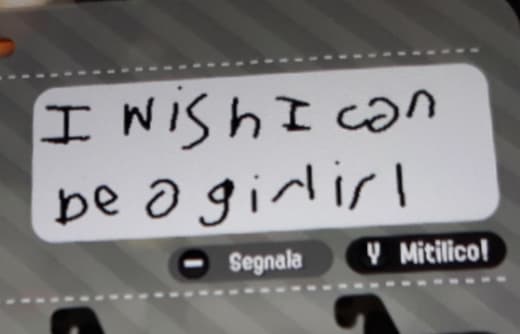 I WISh I can
be a girlirl
Segnala
Y Mitilico!